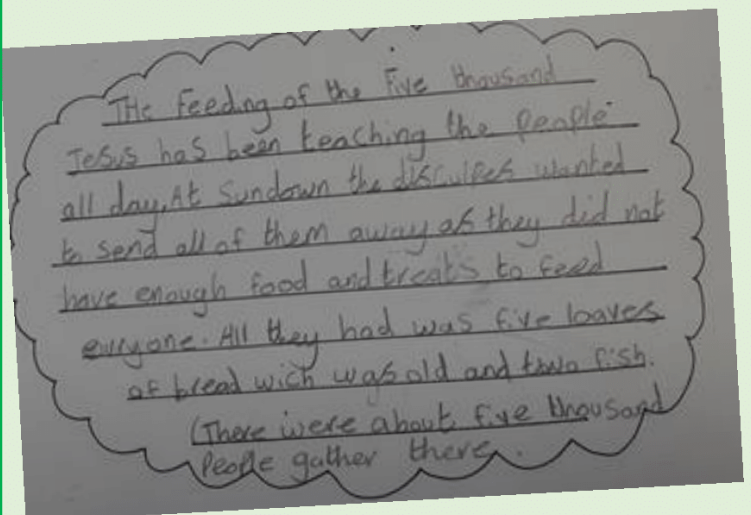 THe feeding of the Five thousand
Jesus has been teaching the people
all day. At Sundown the disculpes wanted
to send all of them away as they did not
have enough food and treats to feed
everyone. All they had was five loaves
of bread wich was old and two fish.
(There were about five thousand
people gather there.